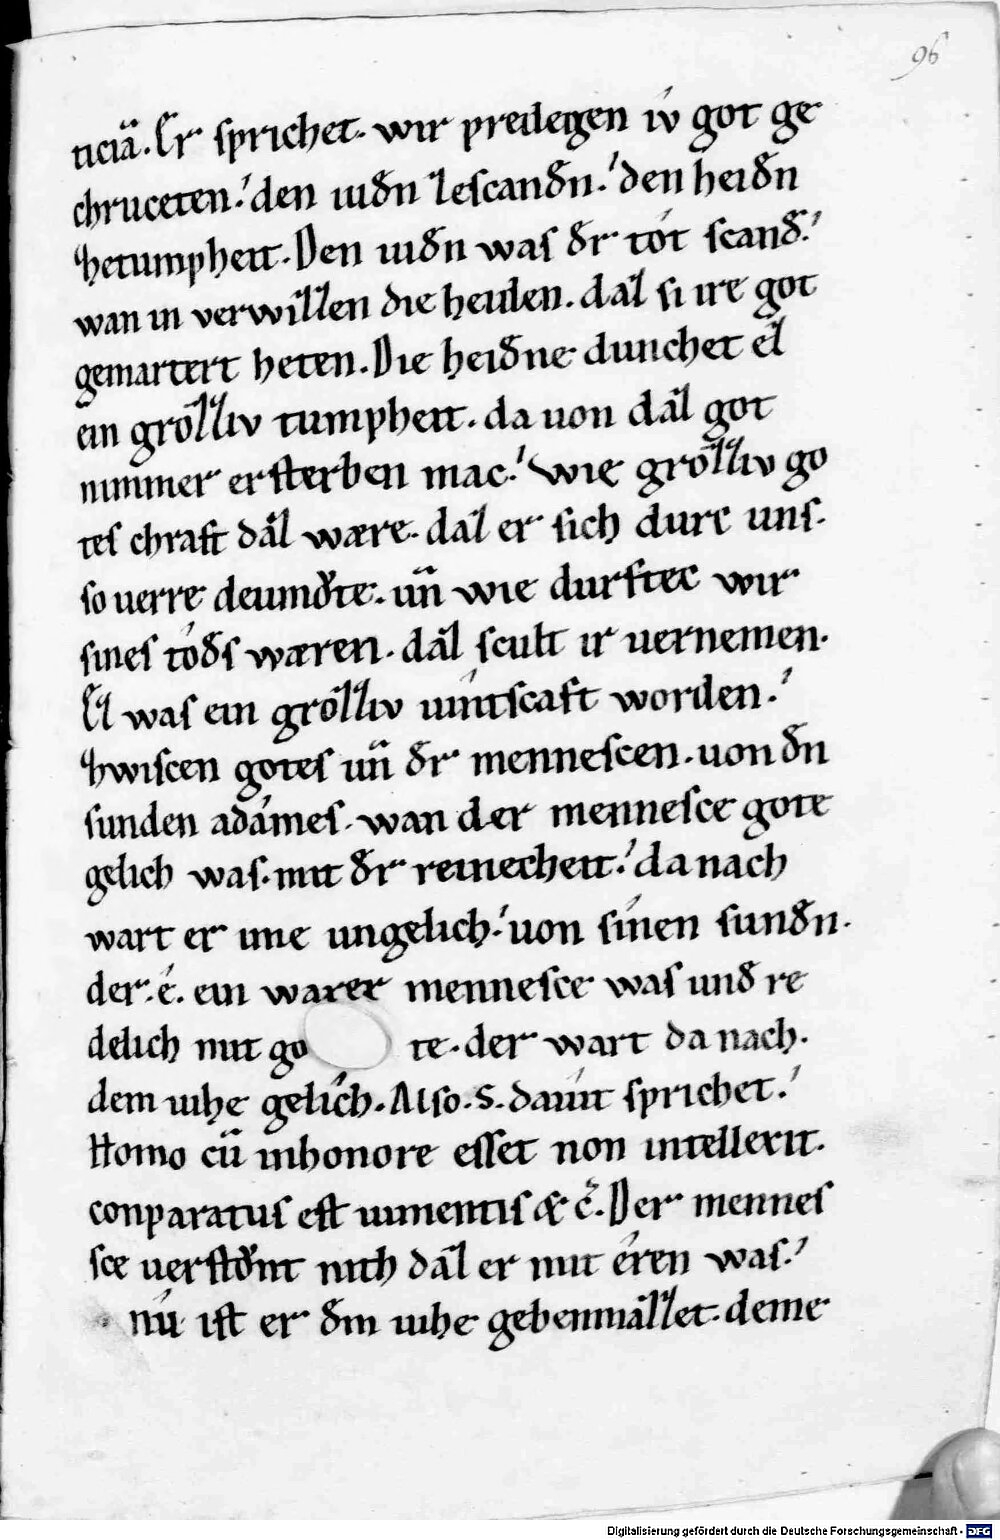 96
ticiā. Er sprichet. wir predegen iv got ge
chruceten. den iuđn zescanđn. den heiđn
zetumpheit. Den iuđn was đr tót scanđ.
wan in verwizzen die heiden. daz si ire got
gemartert heten. Die heiđne dunchet ez
ein grozziv tumpheit. da uon daz got
nimmer ersterben mac. wie grozziv go
tes chraft daz wære. daz er sich durc uns.
so uerre deumǒte. uñ wie durftec wir
sines tođs wæren. daz scult ir uernemen.
Ez was ein grozziv uintscaft worden.
zwiscen gotes uñ đr mennescen. uon đn
sunden adámes. wan der mennesce gote
gelich was. mit đr reinecheit. da nach
wart er ime ungelich. uon sínen sunđn.
der. é. ein warer mennesce was unđ re
delich mit go te. der wart da nach.
dem uihe gelích. Also. S. dauit sprichet.
Homo cū inhonore esset non intellexit.
conparatus est iumentis & c̃. Der mennes
sce uerstǒnt nith daz er mit éren was.
nú ist er đm uihe gebenmazzet. deme
Digitalisierung gefördert durch die Deutsche Forschungsgemeinschaft - DFG